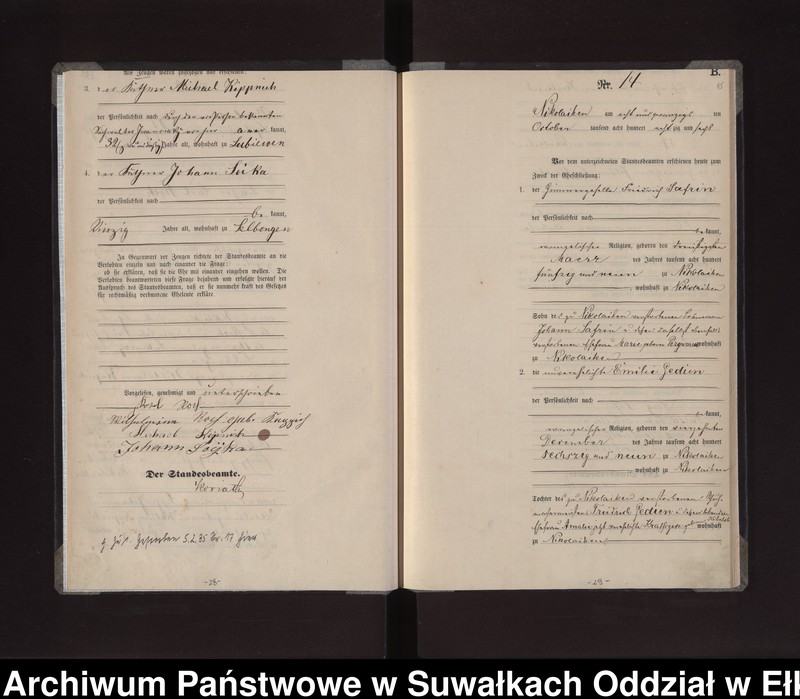 Als Zeugen waren zugezogen und erschienen:
3. der Käthner Michael Köppnich
der Persönlichkeit nach durch den
kannt,
32 Jahre alt, wohnhaft zu Lubiewen
4. der Käthner Johann
der Persönlichkeit nach
be kannt,
vierzig Jahre alt, wohnhaft zu Selbongen
In Gegenwart der Zeugen richtete der Standesbeamte an die
Verlobten einzeln und nach einander die Frage:
ob sie erklären, daß sie die Ehe mit einander eingehen wollen. Die
Verlobten beantworteten diese Frage bejahend und erfolgte hierauf der
Ausspruch des Standesbeamten, daß er sie nunmehr kraft des Gesetzes
für rechtmäßig verbundene Eheleute erkläre.
Vorgelesen, genehmigt und unterschrieben
Wilhelmine geb.
Michael
Johann
Der Standesbeamte.
Koriath
Gestorben 5.2.35 Nr. 17 hier
-28-
B.
Nr. 14
Nikolaiken am acht und zwanzigs ten
October tausend acht hundert acht zig und sechs
Vor dem unterzeichneten Standesbeamten erschienen heute zum
Zweck der Eheschließung:
1. der Zimmergeselle Friedrich Safrin
der Persönlichkeit nach
be kannt,
evangelischer Religion, geboren den
Maerz des Jahres tausend acht hundert
fünfzig und neun zu Nikolaiken
, wohnhaft zu Nikolaiken
Sohn des zu Nikolaiken verstorbenen
Johann Safrin u. dessen daselbst ebenfalls
verstorbenen Ehefrau Marie geborn wohnhaft
zu Nikolaiken
2. die unverehelichte Emilie Jedien
der Persönlichkeit nach
be kannt,
evangelischer Religion, geboren den vierzehnten
December des Jahres tausend acht hundert
sechszig und neun zu Nikolaiken
, wohnhaft zu Nikolaiken
Tochter des zu Nikolaiken verstorbenen Schuh-
machermeister Friedrich Jedien u. dessen lebenden
Ehefrau Amalie jetzt verehelichte wohnhaft
zu Nikolaiken
-29-
Archiwum Państwowe w Suwałkach Oddział w Ełk